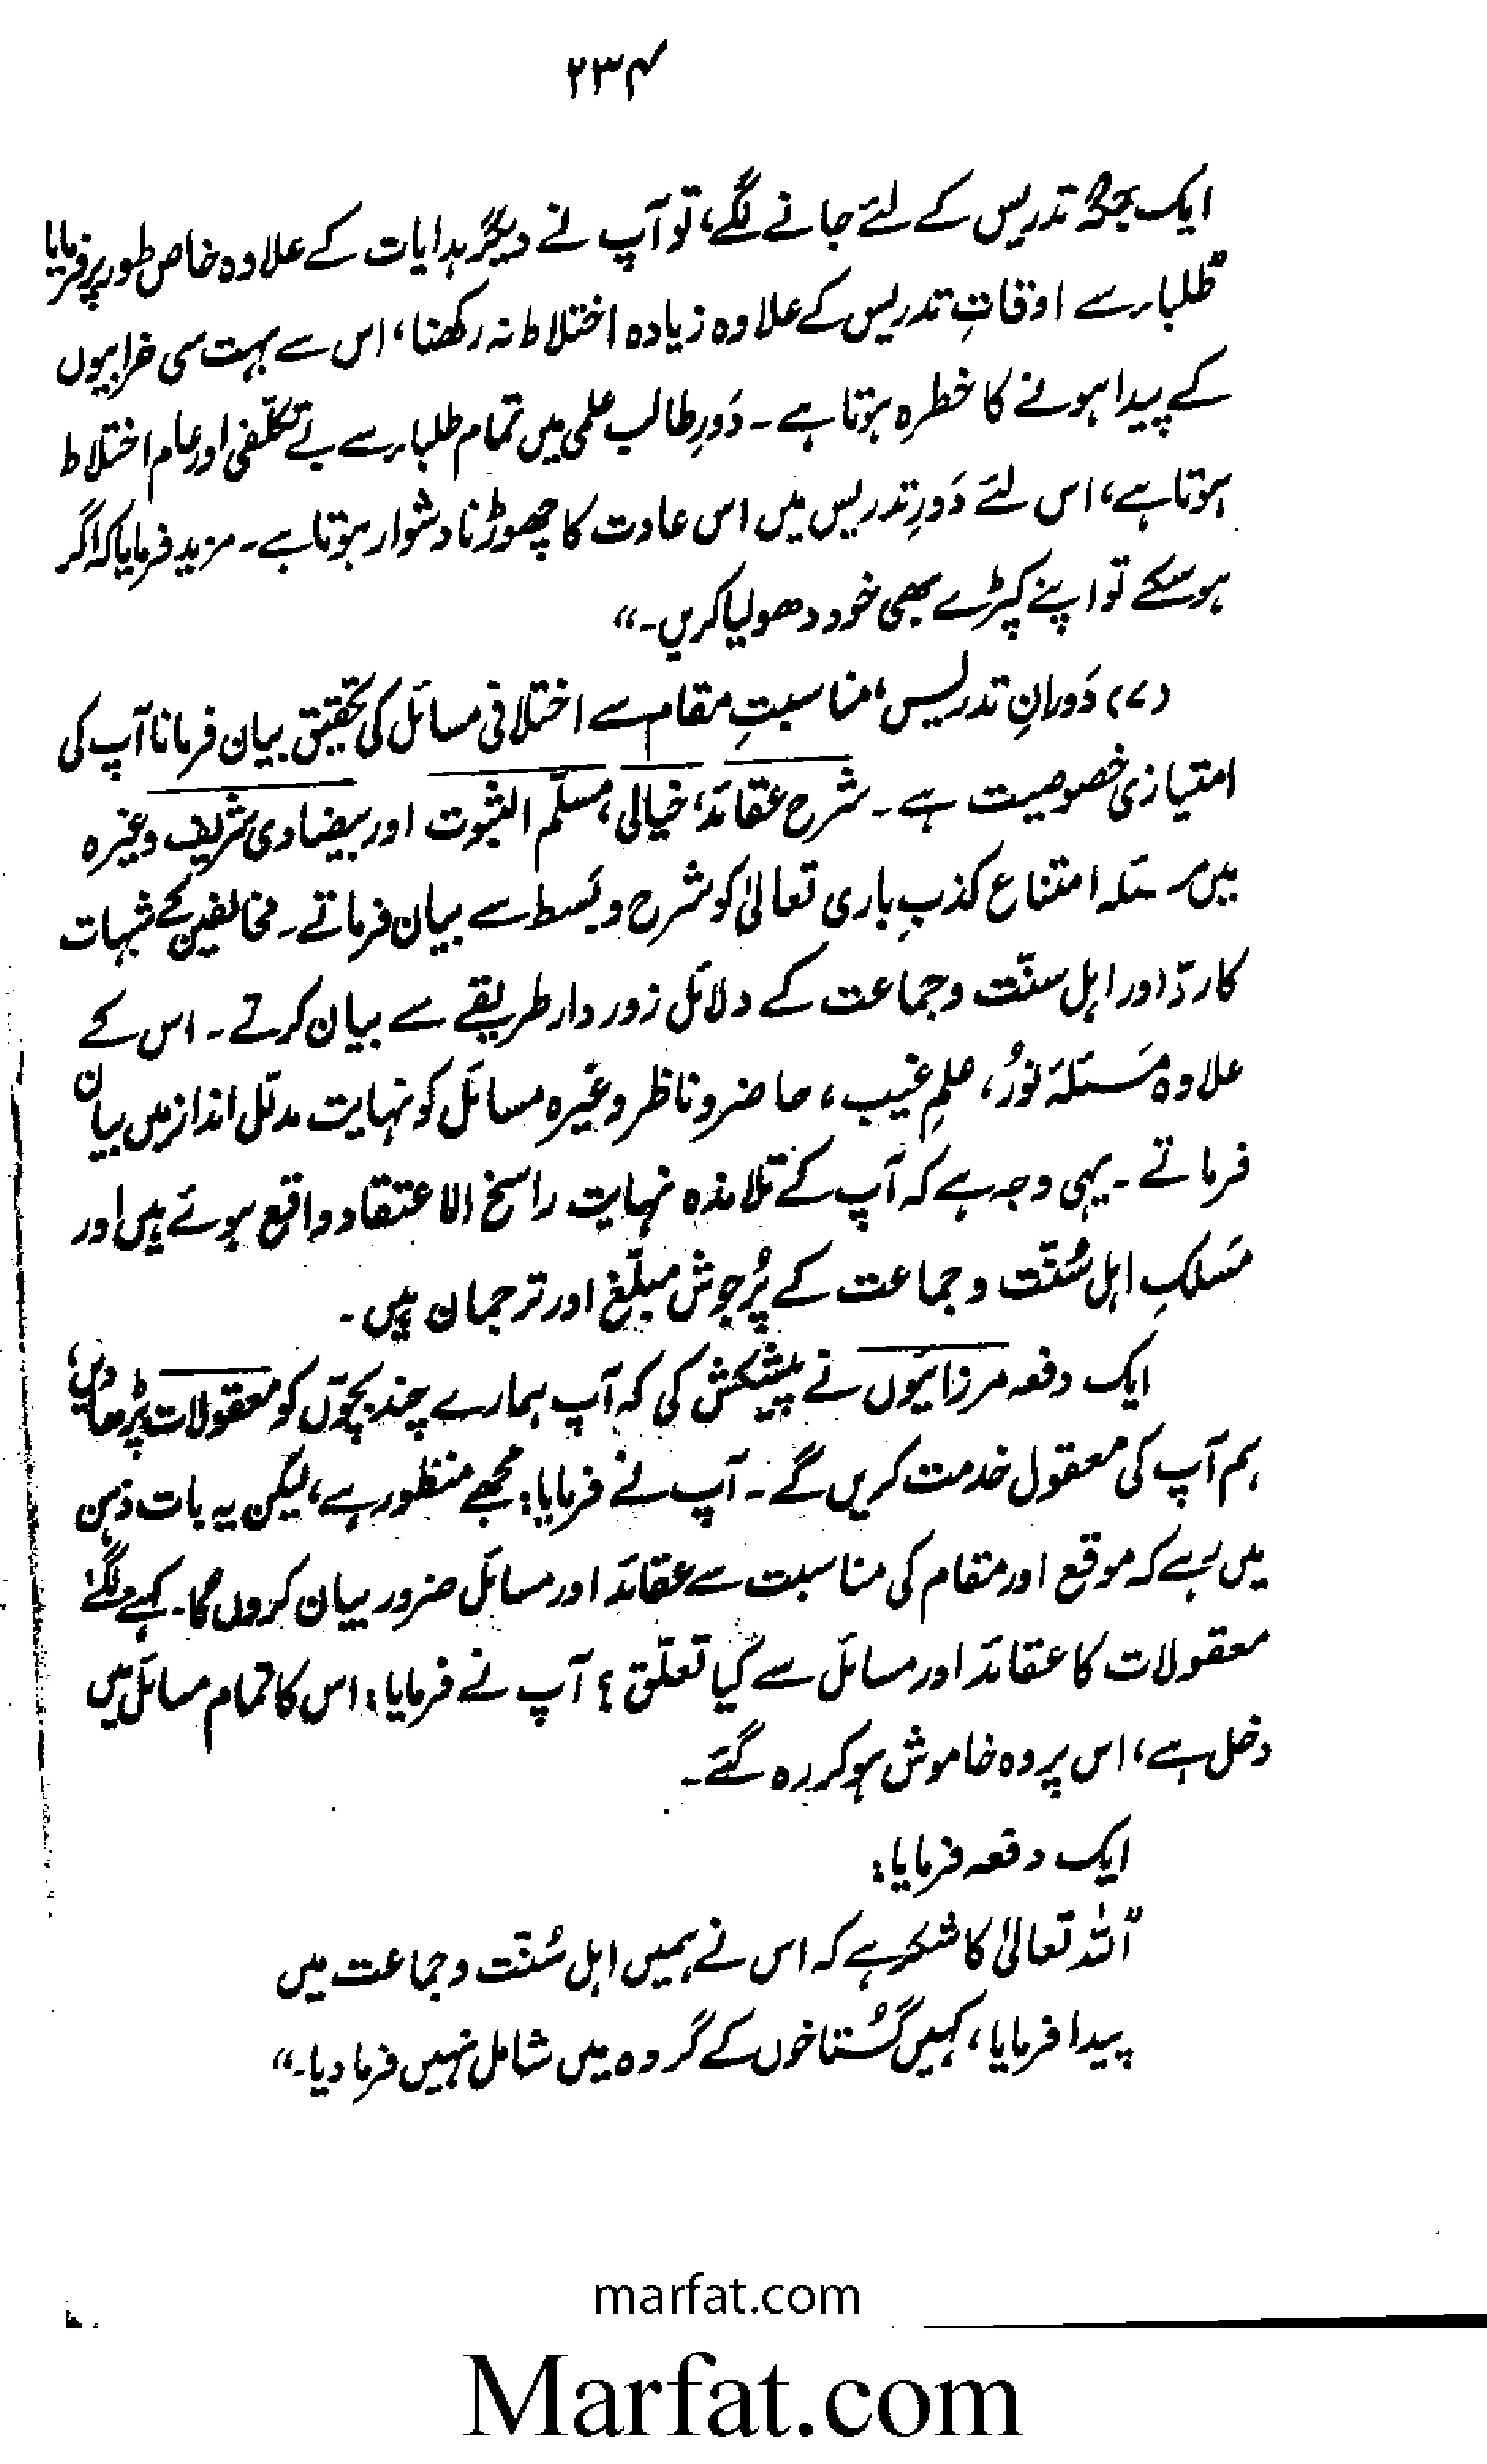 ۲۳۴
ایک جگہ تدریس کے لئے جانے لگے، تو آپ نے دیگر ہدایات کے علاوہ خاص طور پر فرمایا
"طلباء سے اوقاتِ تدریس کے علاوہ زیادہ اختلاط نہ رکھنا، اس سے بہت سی خرابیوں
کے پیدا ہونے کا خطرہ ہوتا ہے۔ دَورِ طالب علمی میں تمام طلباء سے بے تکلّفی اور عام اختلاط
ہوتا ہے، اس لئے دَورِ تدریس میں اس عادت کا چھوڑنا دشوار ہوتا ہے۔ مزید فرمایا کہ اگر
ہو سکے تو اپنے کپڑے بھی خود دھو لیا کریں۔"
(۷) دَورانِ تدریس، مناسبتِ مقام سے اختلافی مسائل کی تحقیق بیان فرمانا آپ کی
امتیازی خصوصیت ہے۔ شرح عقائد، خیالی، مسلّم الثبوت اور بیضاوی شریف وغیرہ
میں مسئلہ امتناع کذبِ باری تعالیٰ کو شرح و بَسط سے بیان فرماتے۔ مخالفین کے شبہات
کا ردّ اور اہل سنّت و جماعت کے دلائل زور دار طریقے سے بیان کرتے۔ اس کے
علاوہ مَسئلۂ نورُ، علمِ غیب، حاضر و ناظر وغیرہ مسائل کو نہایت مدلّل انداز میں بیان
فرماتے۔ یہی وجہ ہے کہ آپ کے تلامذہ نہایت راسخ الاعتقاد واقع ہوئے ہیں اور
مَسلکِ اہل سُنّت و جماعت کے پُرجوش مبلّغ اور ترجمان ہیں۔
ایک دفعہ مرزائیوں نے پیشکش کی کہ آپ ہمارے چند بچوّں کو معقولات پڑھا دیں،
ہم آپ کی معقول خدمت کریں گے۔ آپ نے فرمایا: مجھے منظور ہے، لیکن یہ بات ذہن
میں رہے کہ موقع اور مقام کی مناسبت سے عقائد اور مسائل ضرور بیان کروں گا۔ کہنے لگے:
معقولات کا عقائد اور مسائل سے کیا تعلّق؟ آپ نے فرمایا: اس کا تمام مسائل میں
دخل ہے، اس پر وہ خاموش ہو کر رہ گئے۔
ایک دفعہ فرمایا:
"اللہ تعالیٰ کا شکر ہے کہ اس نے ہمیں اہل سُنّت و جماعت میں
پیدا فرمایا، کہیں گُستاخوں کے گروہ میں شامل نہیں فرما دیا۔"
marfat.com
Marfat.com